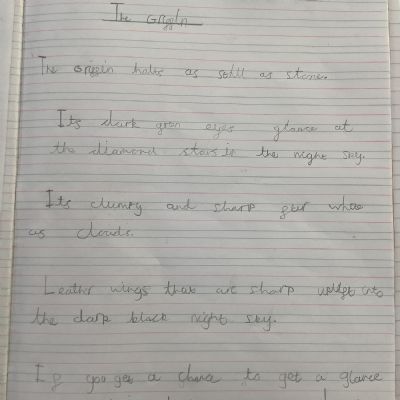 The Griffin
The griffin halts as still as stone.
Its dark green eyes glance at
the diamond stars in the night sky.
Its clumpy and sharp fur white
as clouds.
Leather wings that are sharp into
the dark black night sky.
If you get a chance to get a glance